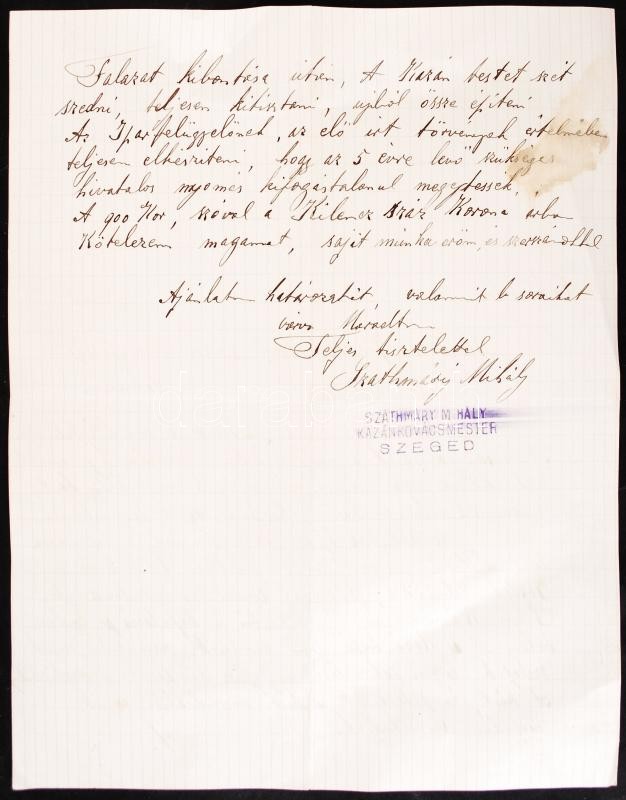 Falazat kibontása után, A Kazán testet szét
szedni, teljesen kitisztani, ujból össze épiteni
Az Iparfelügyelőnek, az elő irt törvények értelmében
teljesen elkésziteni, hogy az 5 évre levő szükséges
hivatalos nyomás kifogástalanul megejtessék,
A 900 Kor, szóval a Kilencz száz Korona árba
Kötelezem magamat, saját munka erőm, és szerszámokkal
Ajánlatom határozatát, valamint b soraikat
várva Maradtam
Teljes tisztelettel
Szathmáry Mihály
SZATHMÁRY MIHÁLY
KAZÁNKOVÁCSMESTER
SZEGED